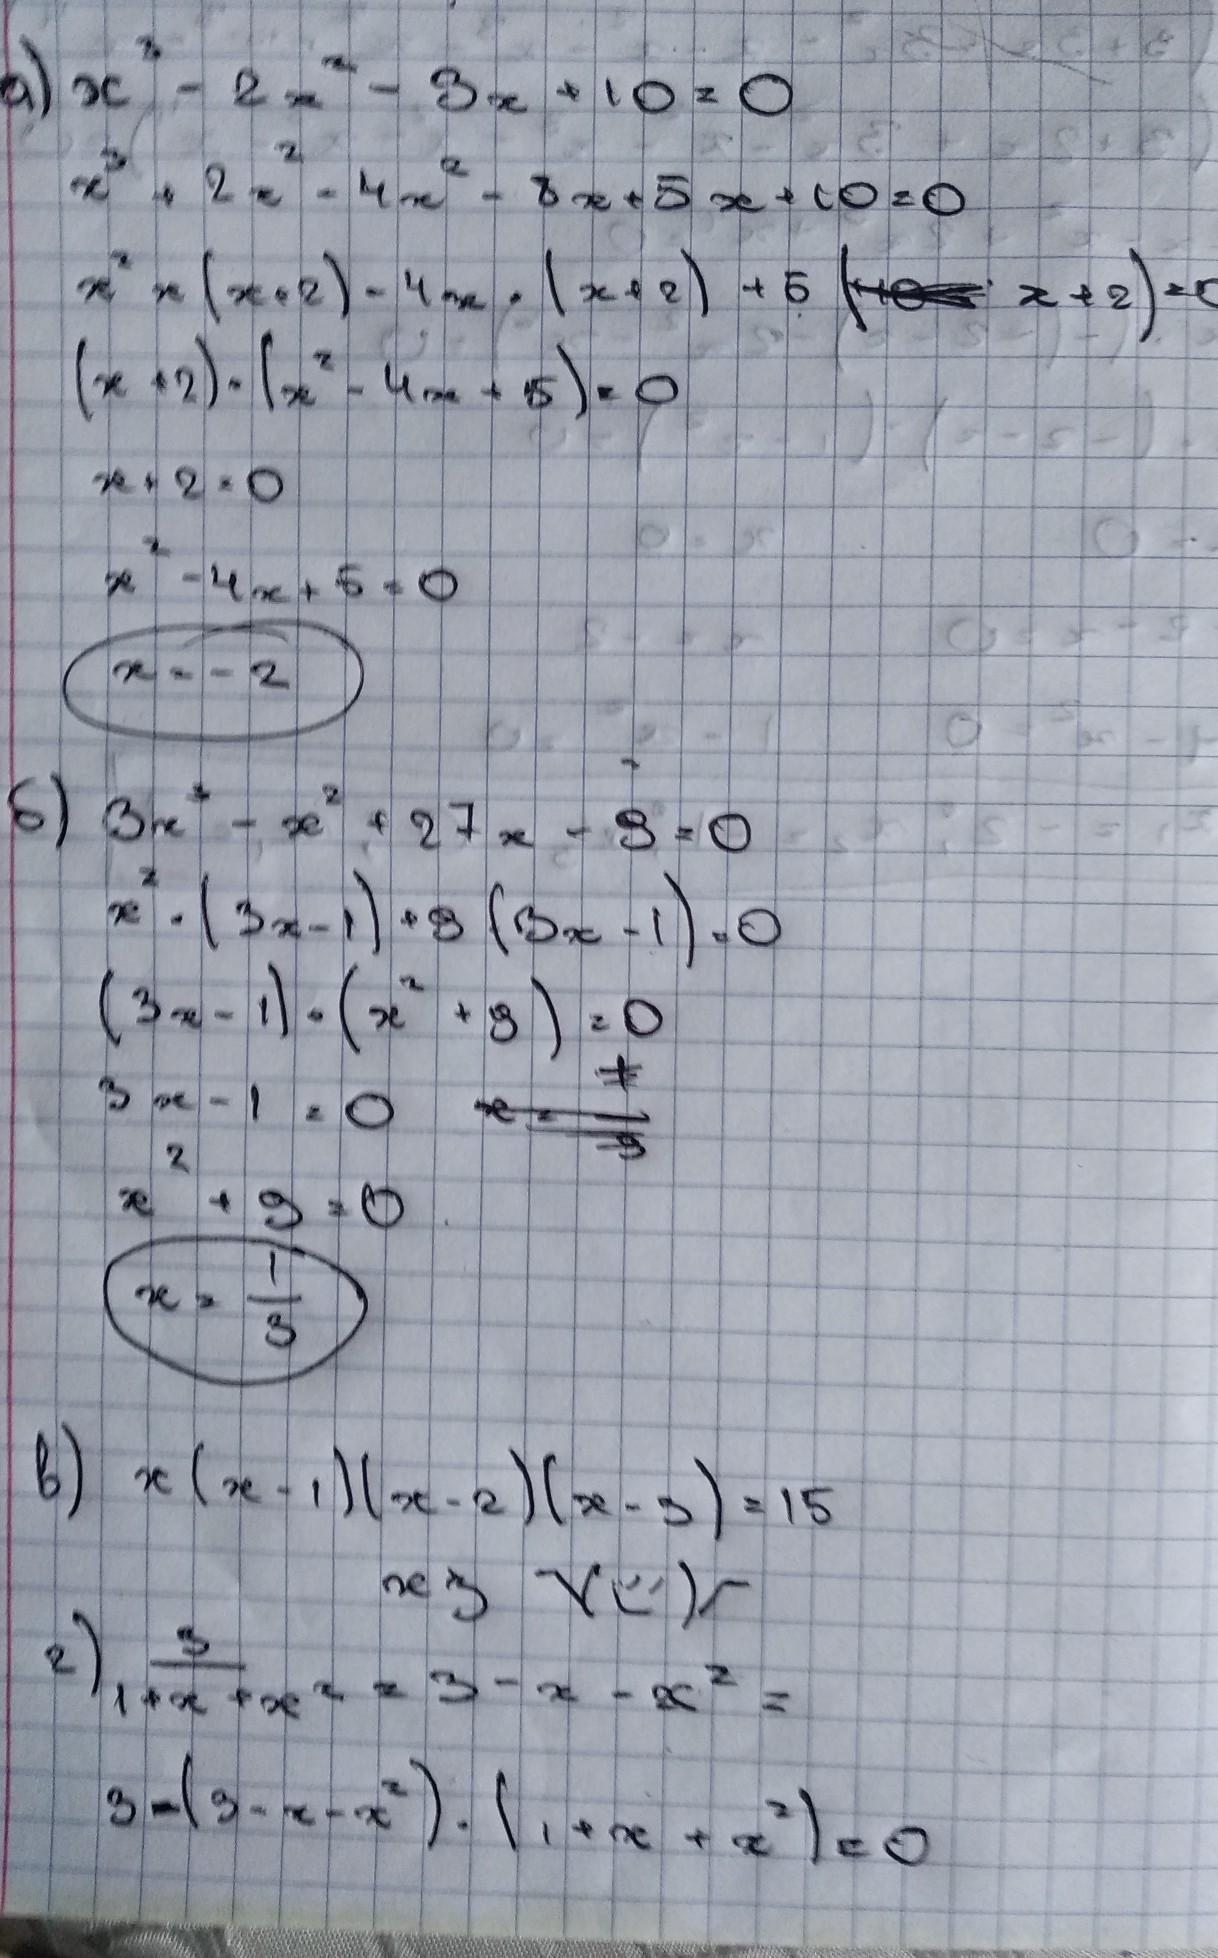 а) x³ - 2x² - 3x + 10 = 0
x³ + 2x² - 4x² - 8x + 5x + 10 = 0
x² × (x+2) - 4x · (x+2) + 5 (x+2) = 0
(x+2) · (x² - 4x + 5) = 0
x + 2 = 0
x² - 4x + 5 = 0
x = -2
б) 3x³ - x² + 27x - 9 = 0
x² · (3x-1) + 9 (3x-1) = 0
(3x-1) · (x² + 9) = 0
3x - 1 = 0
x² + 9 = 0
x = 1/3
в) x(x-1)(x-2)(x-3) = 15
г) 3/(1+x+x²) = 3 - x - x² =
3 - (3-x-x²) · (1+x+x²) = 0